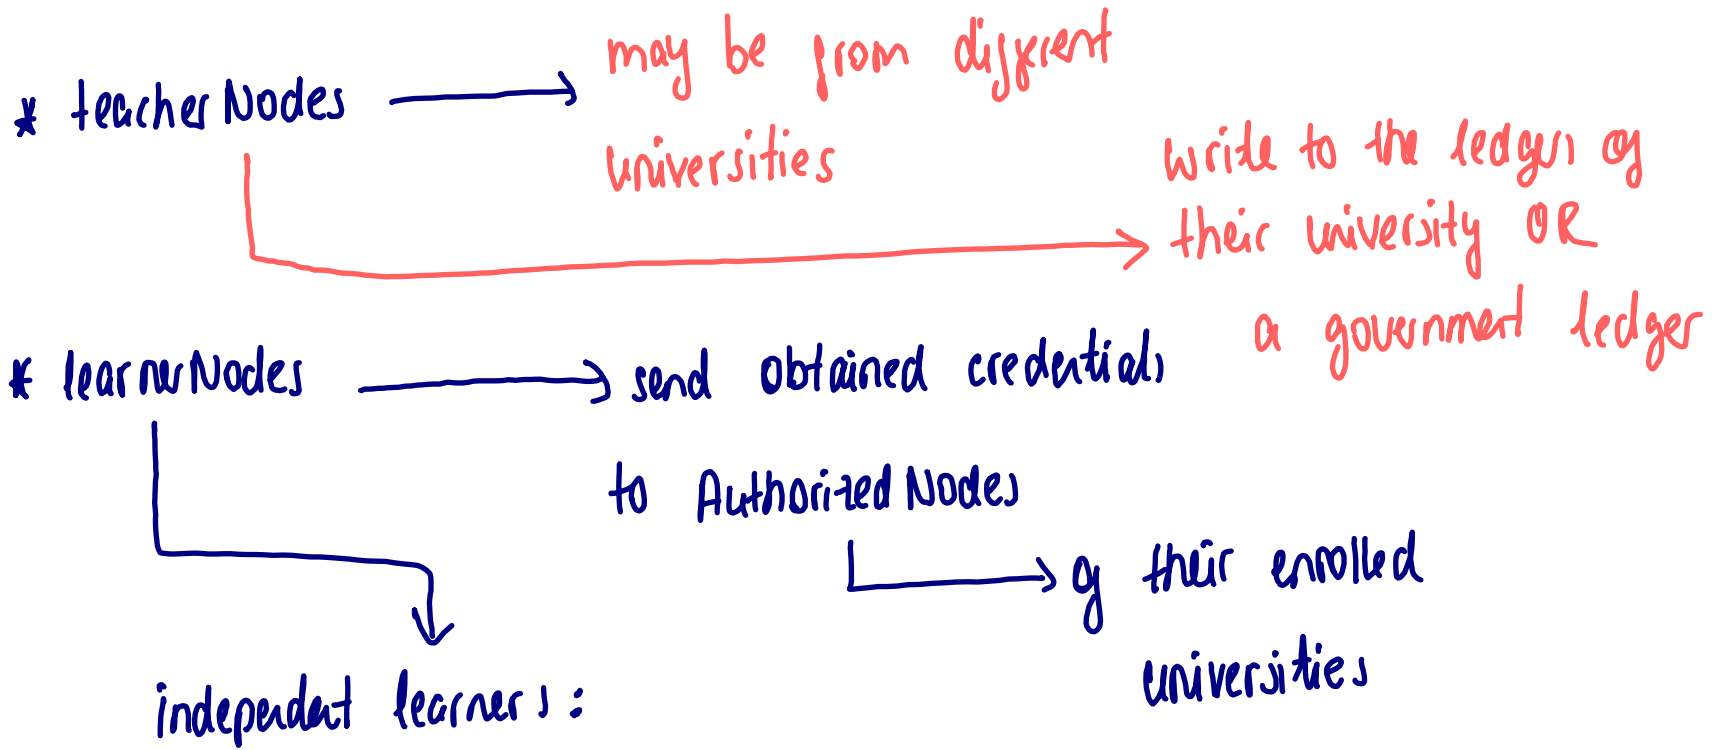 * teacherNodes
may be from different
universities
write to the ledger of
their university OR
a government ledger
* learnerNodes
send obtained credentials
to AuthorizedNodes
of their enrolled
universities
independent learners: